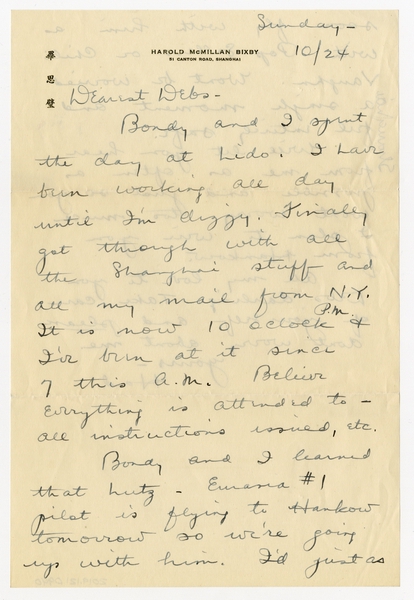 Sunday -
10/24
畢
思
璧
HAROLD McMILLAN BIXBY
51 CANTON ROAD, SHANGHAI
Dearest Debs -
Bondy and I spent
the day at Lido. I have
been working all day
until I'm dizzy. Finally
got through with all
the Shanghai stuff and
all my mail from N.Y.
It is now 10 oclock P.M. &
I've been at it since
7 this A.M. Believe
Everything is attended to -
all instructions issued, etc.
Bondy and I learned
that Lutz - Eurasia #1
pilot is flying to Hankow
tomorrow so we're going
up with him. I'd just as